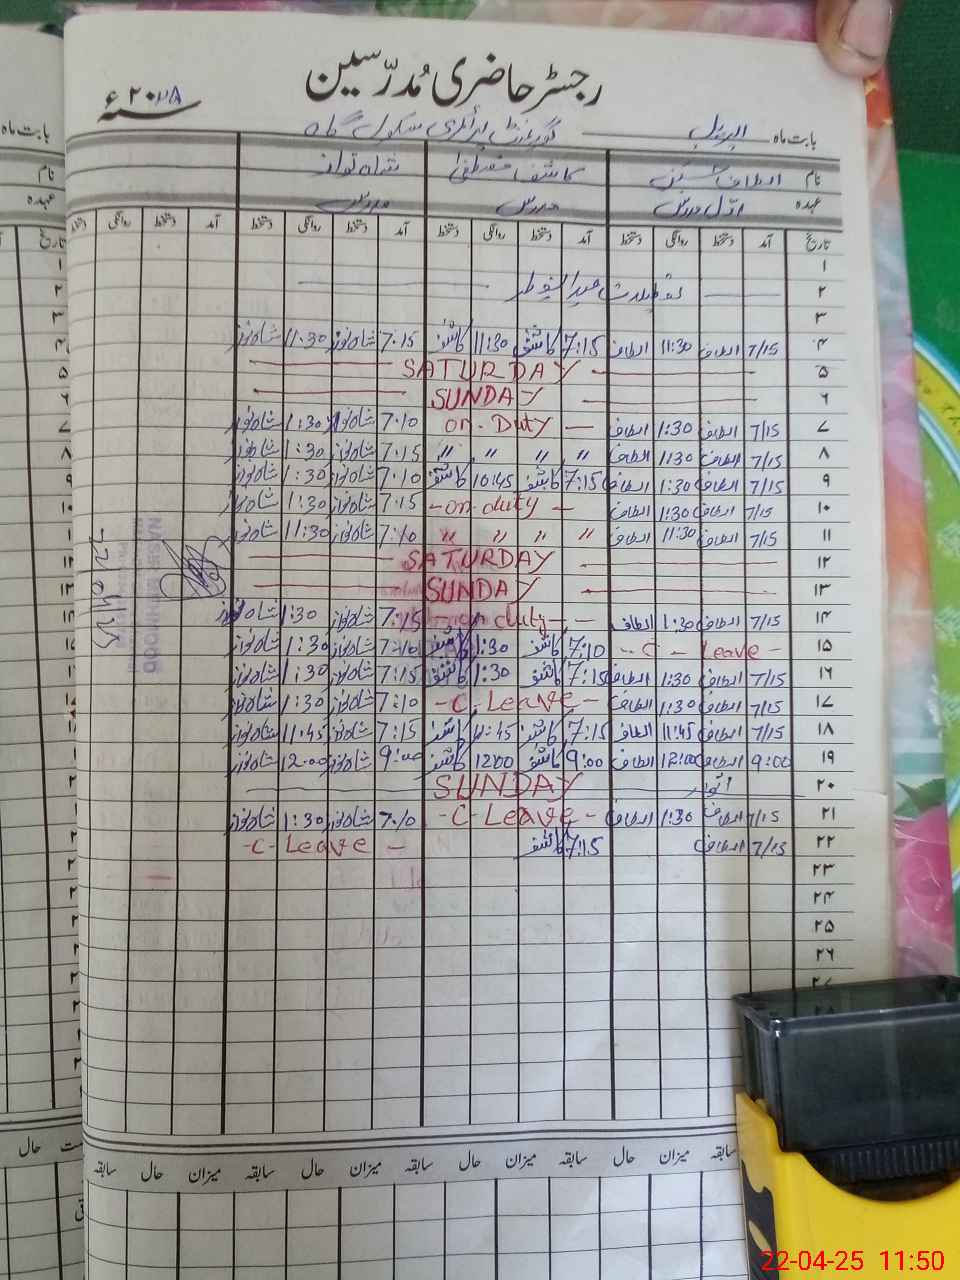 رجسٹر حاضری مُدرّسین
سنہ ۲۰۲۵ء
بابت ماہ اپریل گورنمنٹ پرائمری سکول
نام الطاف حسین کاشف مصطفیٰ شاہ نواز
عہدہ اوّل مدرس مدرس مدرس
تاریخ آمد دستخط روانگی دستخط آمد دستخط روانگی دستخط آمد دستخط روانگی دستخط آمد دستخط روانگی دستخط
۱
۲ تعطیلات عید الفطر
۳
۴ 7/15 الطاف 11:30 الطاف 7:15 کاشف 11:30 کاشف 7:15 شاہ نواز 11:30 شاہ نواز
۵ SATURDAY
۶ SUNDAY
۷ 7/15 الطاف 1:30 الطاف on-Duty 7:10 شاہ نواز 1:30 شاہ نواز
۸ 7/15 الطاف 1:30 الطاف " " " " 7:15 شاہ نواز 1:30 شاہ نواز
۹ 7/15 الطاف 1:30 الطاف 7:15 کاشف 10:45 کاشف 7:10 شاہ نواز 1:30 شاہ نواز
۱۰ 7/15 الطاف 1:30 الطاف -on-duty- 7:15 شاہ نواز 1:30 شاہ نواز
۱۱ 7/15 الطاف 11:30 الطاف " " " " 7:10 شاہ نواز 11:30 شاہ نواز
۱۲ SATURDAY
۱۳ SUNDAY
۱۴ 7/15 الطاف 1:30 الطاف on duty- 7:15 شاہ نواز 1:30 شاہ نواز
۱۵ -C-Leave- 7:10 کاشف 1:30 کاشف 7:10 شاہ نواز 1:30 شاہ نواز
۱۶ 7/15 الطاف 1:30 الطاف 7:15 کاشف 1:30 کاشف 7:15 شاہ نواز 1:30 شاہ نواز
۱۷ 7/15 الطاف 1:30 الطاف -C-Leave- 7:10 شاہ نواز 1:30 شاہ نواز
۱۸ 7/15 الطاف 11:45 الطاف 7:15 کاشف 11:45 کاشف 7:15 شاہ نواز 11:45 شاہ نواز
۱۹ 9:00 الطاف 12:00 الطاف 9:00 کاشف 1200 کاشف 9:00 شاہ نواز 12:00 شاہ نواز
۲۰ اتوار SUNDAY
۲۱ 7/15 الطاف 1:30 الطاف -C-Leave- 7:10 شاہ نواز 1:30 شاہ نواز
۲۲ 7/15 الطاف 7:15 کاشف -C-Leave-
۲۳
۲۴
۲۵
۲۶
۲۷
۲۸
22/04/25
سابقہ حال میزان سابقہ حال میزان سابقہ حال میزان سابقہ حال
22-04-25 11:50